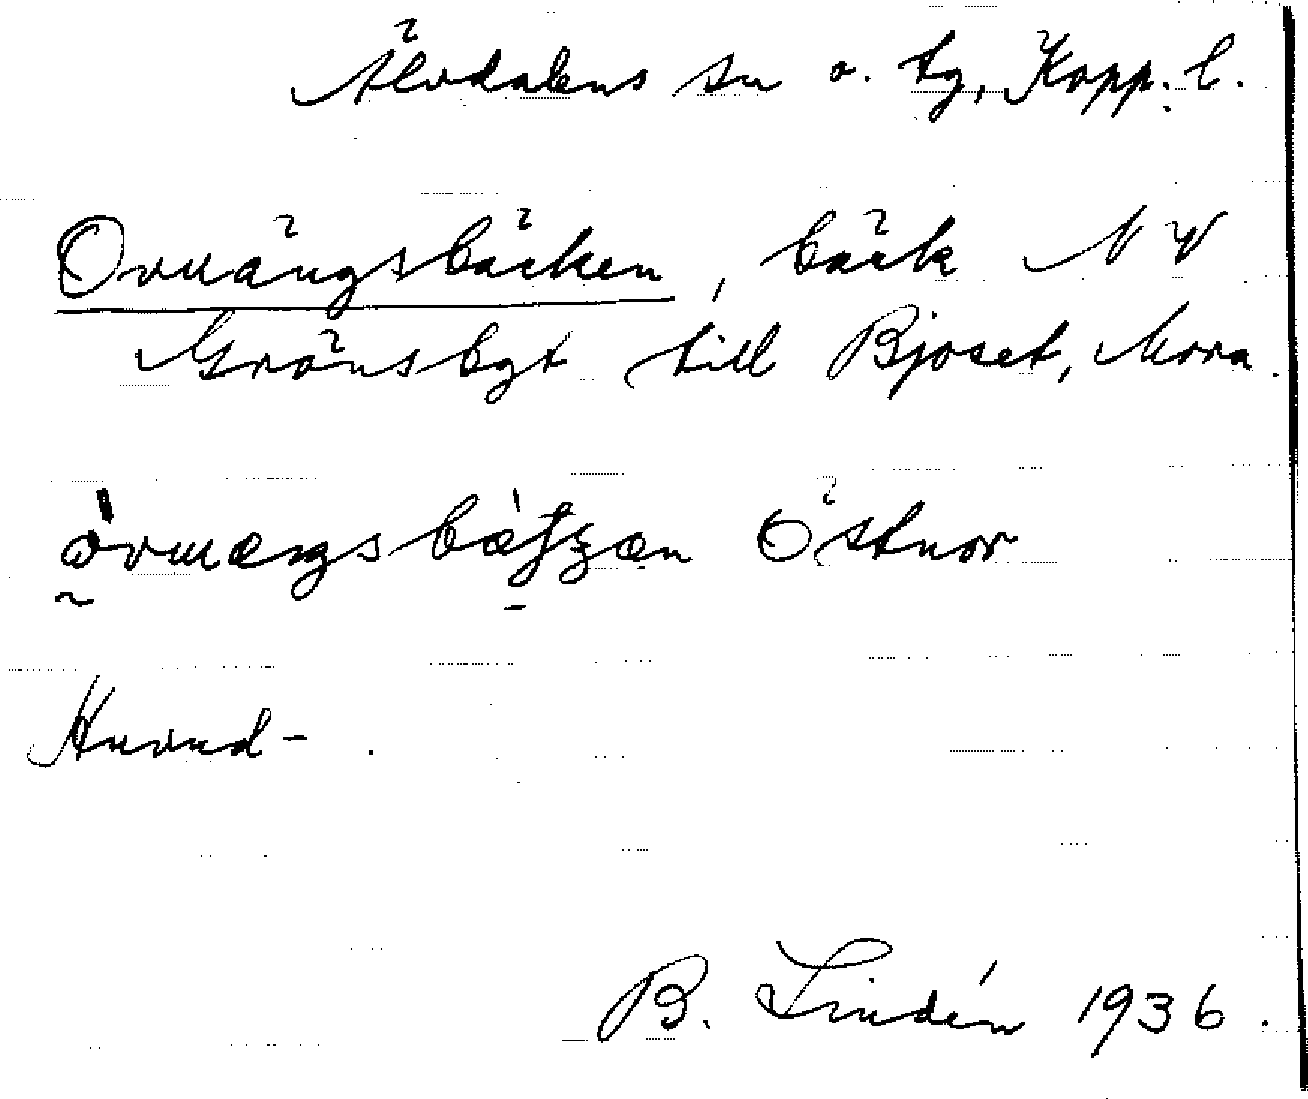 Älvdalens sn o. tg, Kopp. l.
Orrängsbäcken, bäck NV
Gränsbgt till Bjoset, Mora.
Östnor
Huvud-
B. Lindén 1936.